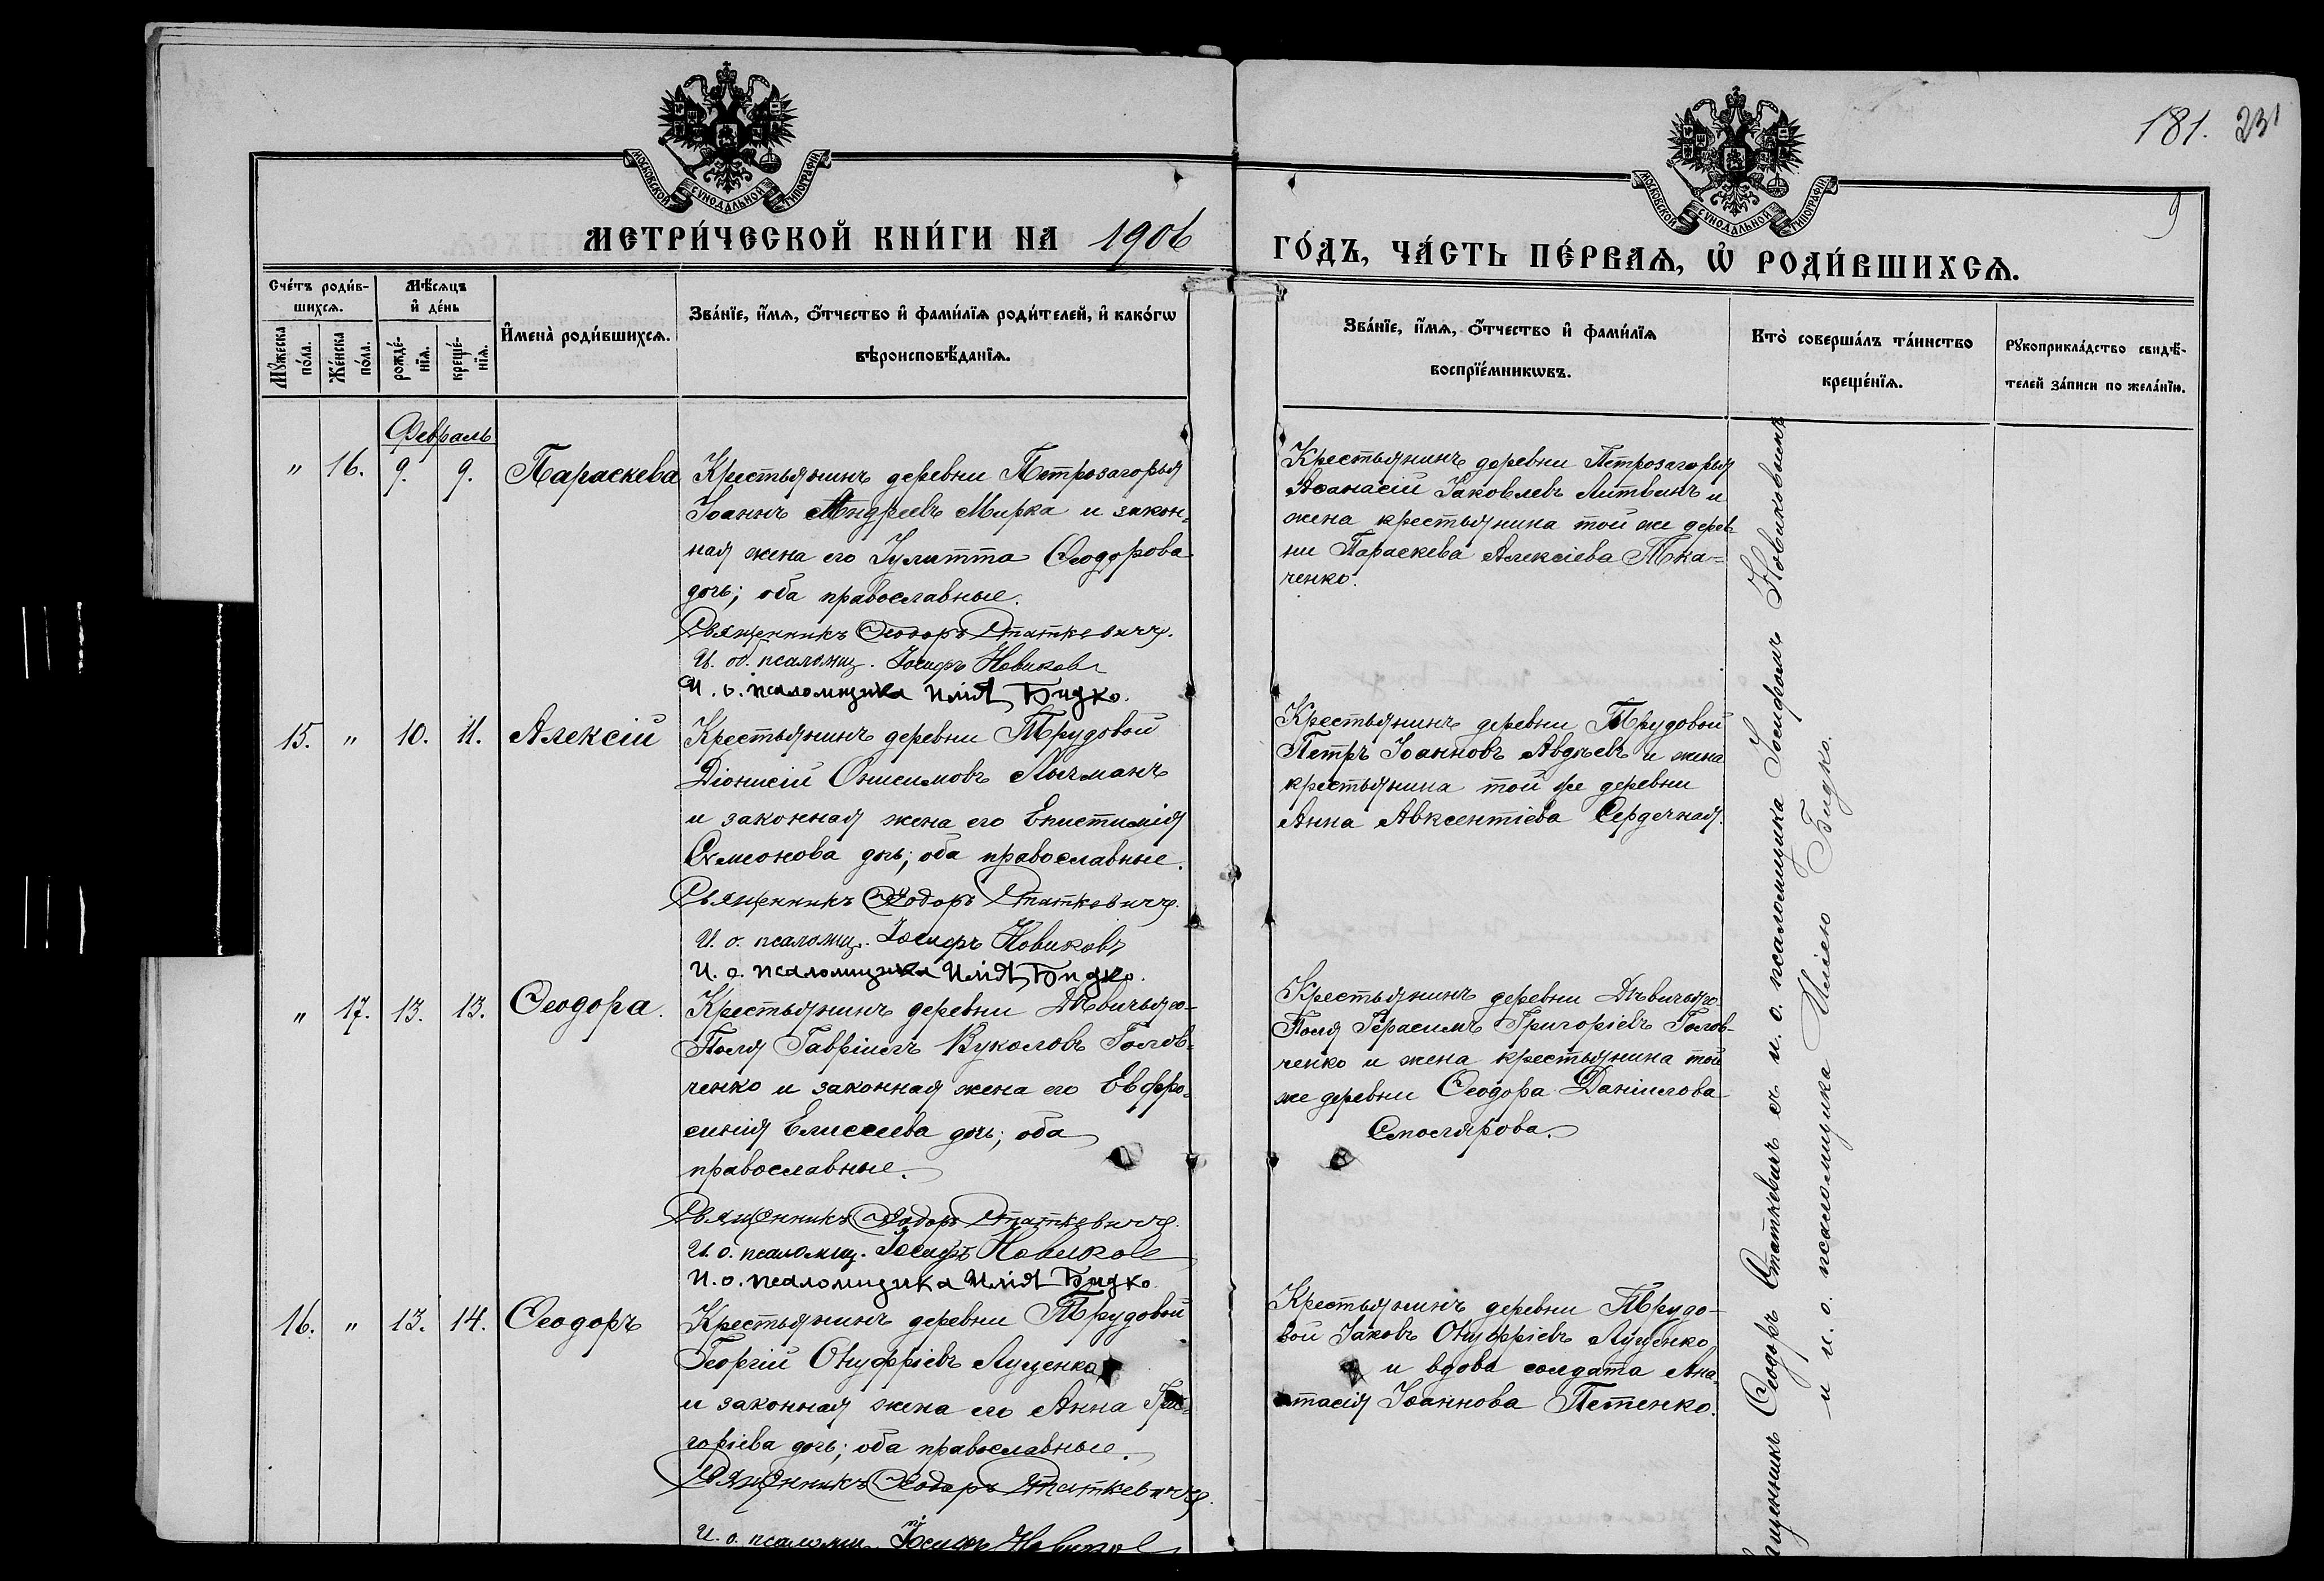 181. 231
МОСКОВСКОЙ СѴНОДАЛЬНОЙ ТИПОГРАФІИ
МОСКОВСКОЙ СѴНОДАЛЬНОЙ ТИПОГРАФІИ
МЕТРИ́ЧЕСКОЙ КНИ́ГИ НА 1906
ГО́ДЪ, ЧА́СТЬ ПЕ́РВАѦ, Ѡ҆ РОДИ́ВШИХСѦ.
Сче́тъ роди́в-
шихсѧ.
Мꙋ́жеска по́ла.
Же́нска по́ла.
Мѣ́сяцъ
и҆ де́нь
рожде́-
нїѧ.
креще́-
нїѧ.
И҆мена̀ роди́вшихсѧ.
Зва́нїе, и҆́мѧ, ѻ҆́тчество и҆ фами́лїѧ роди́телей, и҆ како́гѡ
вѣроисповѣ́данїѧ.
Зва́нїе, и҆́мѧ, ѻ҆́тчество и҆ фами́лїѧ
воспрїе́мникѡвъ.
Кто̀ соверша́лъ та́инство
креще́нїѧ.
Рꙋкоприкла́дство свидѣ́-
телей за́писи по жела́нїю.
Февраль
" 16. 9. 9. Параскева
Крестьянинъ деревни Петрозагорья
Іоаннъ Андреевъ Мирка и закон-
ная жена его Іулитта Ѳеодорова
дочь; оба православные.
Священникъ Ѳеодоръ Статкевичъ.
И. об. псаломщ. Іосифъ Новиковъ
И. о. псаломщика Илія Бидко.
Крестьянинъ деревни Петрозагорья
Аѳанасій Іаковлевъ Литвинъ и
жена крестьянина той же дерев
ни Параскева Алексіева Тка-
ченко.
15. " 10. 11. Алексій
Крестьянинъ деревни Трудовой
Діонисій Онисимовъ Лычманъ
и законная жена его Епистимія
Симеонова дочь; оба православные.
Священникъ Ѳеодоръ Статкевичъ.
И. о. псаломщ. Іосифъ Новиковъ
И. о. псаломщика Илія Бидко.
Крестьянинъ деревни Трудовой
Петръ Іоанновъ Авдѣевъ и жена
крестьянина той же деревни
Анна Авксентіева Сердечная.
" 17. 13. 13. Ѳеодора.
Крестьянинъ деревни Дѣвичьяго-
Поля Гавріилъ Вуколовъ Голов-
ченко и законная жена его Евфро-
синія Елисеева дочь; оба
православные.
Священникъ Ѳеодоръ Статкевичъ.
И. о. псаломщ. Іосифъ Новиковъ
И. о. псаломщика Илія Бидко.
Крестьянинъ деревни Дѣвичьяго-
Поля Герасимъ Григоріевъ Голов-
ченко и жена крестьянина той
же деревни Ѳеодора Даніилова
Столярова.
16. " 13. 14. Ѳеодоръ
Крестьянинъ деревни Трудовой
Георгій Онуфріевъ Луценко
и законная жена его Анна Гри-
горіева дочь; оба православные.
Священникъ Ѳеодоръ Статкевичъ.
И. о. псаломщ. Іосифъ Новиковъ
Крестьянинъ деревни Трудо-
вой Іаковъ Онуфріевъ Луценко
и вдова солдата Ана-
стасія Іоаннова Петенко.
Священникъ Ѳеодоръ Статкевичъ съ и. о. псаломщика Іосифомъ Новиковымъ
и и. о. псаломщика Иліею Бидко.